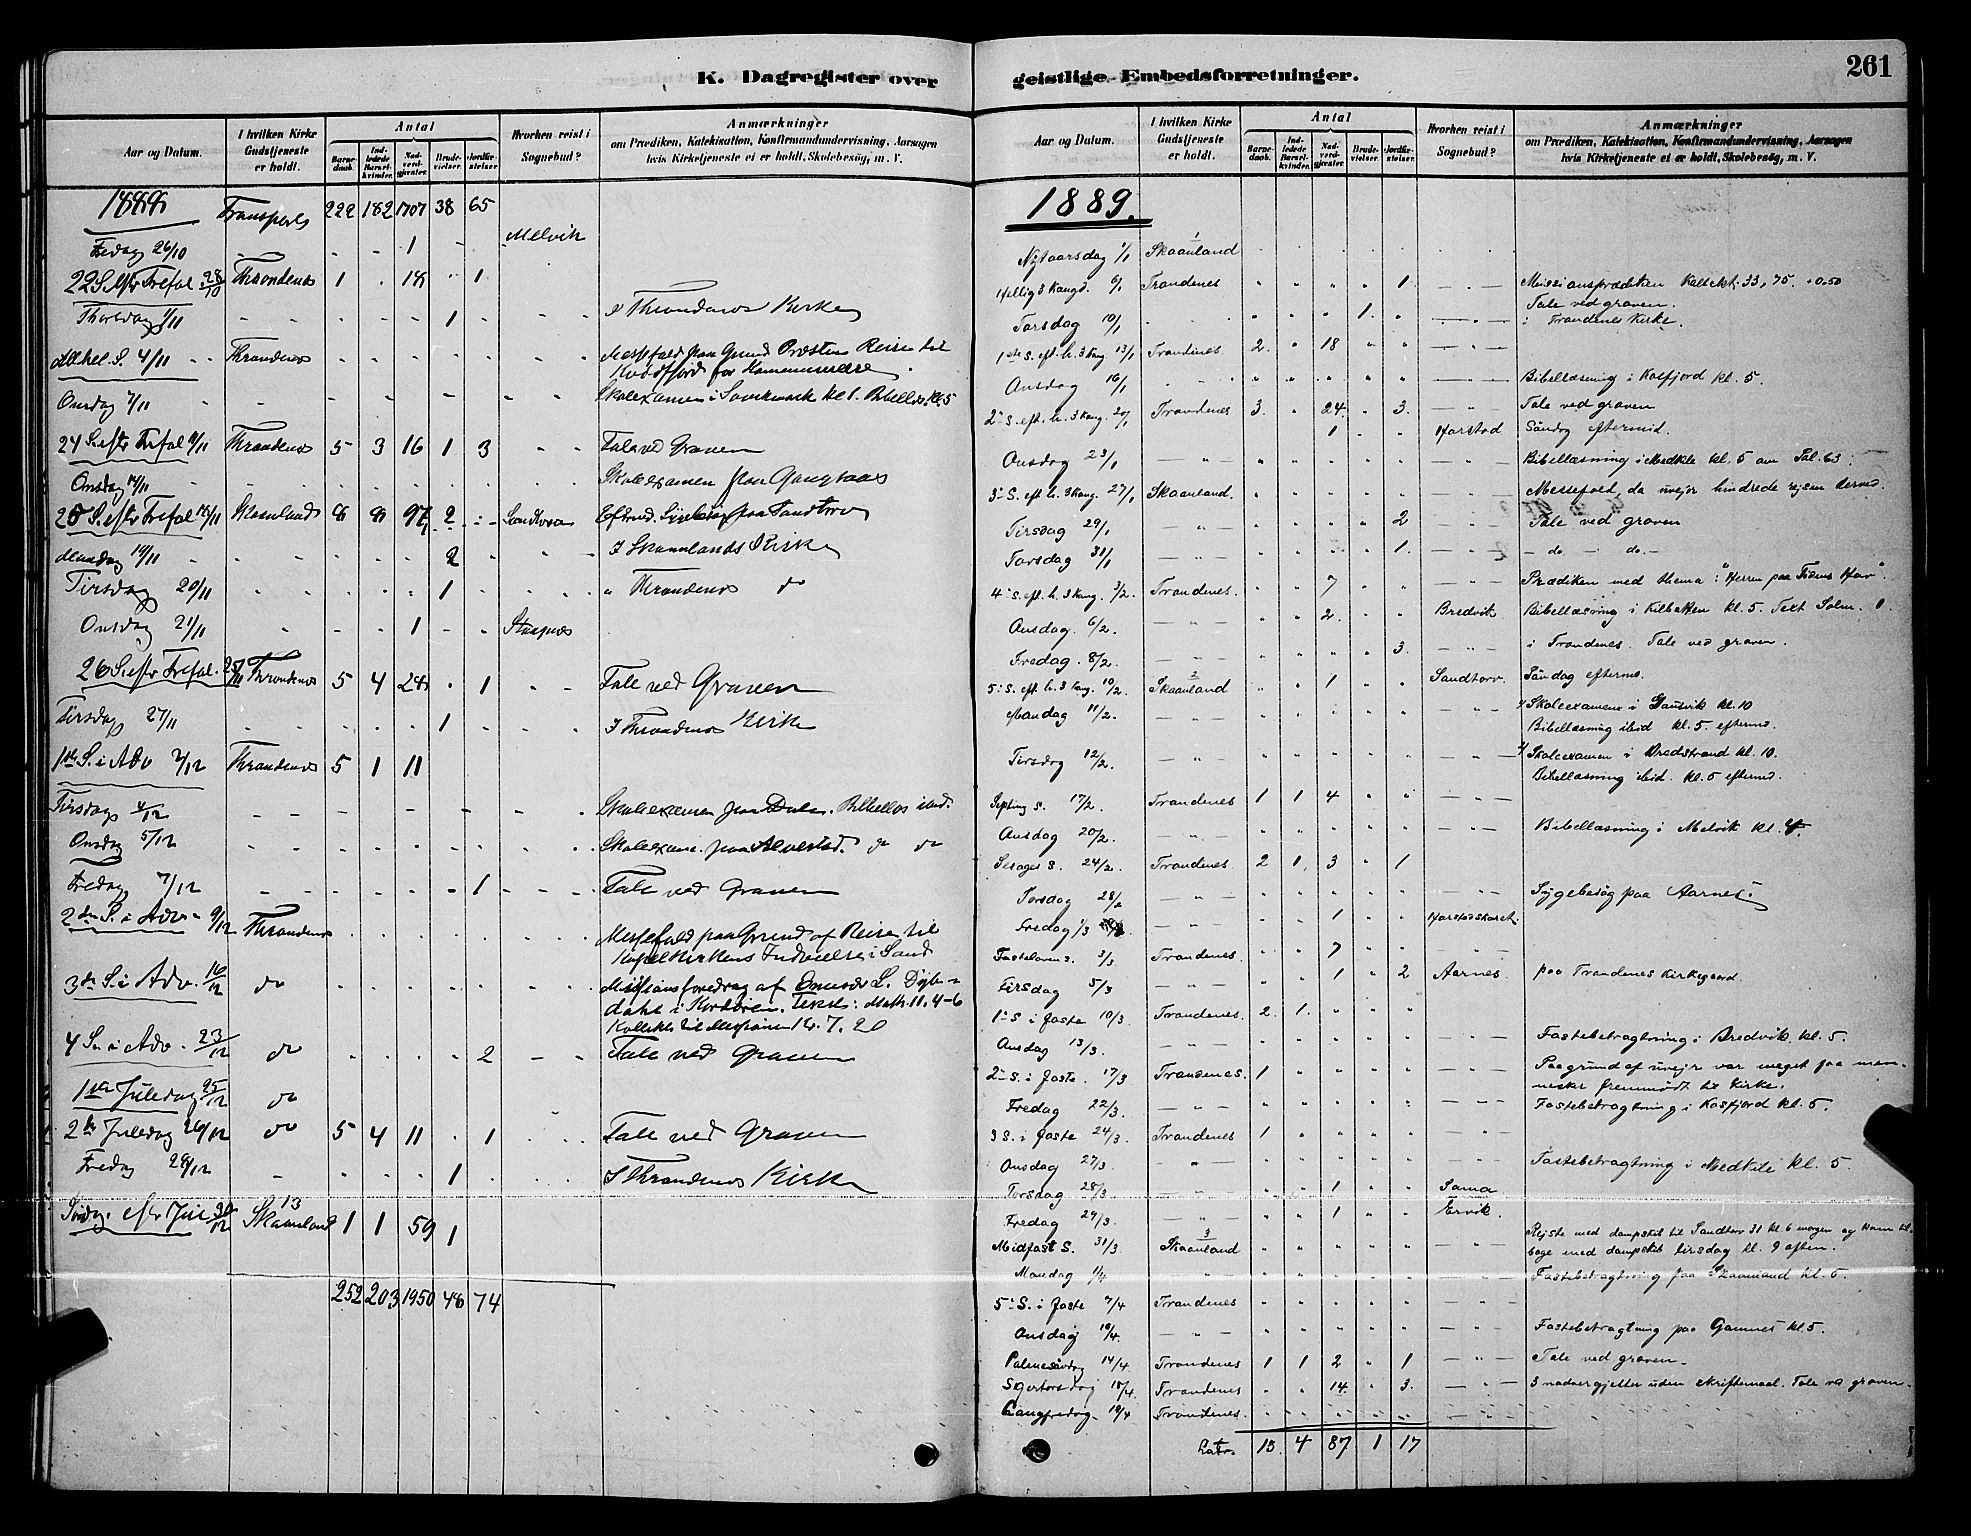 K. Dagregister over
Aar og Datum.
I hvilken Kirke Gudstjeneste er holdt.
Antal
Barne-daab.
Ind-ledede Barsel-kvinder.
Nad-verd-gjester.
Brude-vielser.
Jordfæ-stelser.
Hvorhen reist i Sognebud?
Anmærkninger
om Prædiken, Katekisation, Konfirmandundervisning, Aarsagen
hvis Kirketjeneste ei er holdt, Skolebesøg, m. V.
1888 Transport 222 182 1707 38 65
Fredag 26/10 - - - 1 - - Melvik
22 S. eftr Trefol. 28/10 Throndenes 1 . 18 . 1
Thorsdag 1/11 - - - - 1 - - Throndenes Kirke
Allhel. S. 4/11 Throndenes - - - - - Messefald paa Grund Provstens Reise til
Kvædfjord for
Onsdag 7/11 - - - - - - Skolexamen i kl. 5
24 S. eftr Trefol 11/11 Throndenes 5 3 16 1 3 Tale ved Graven
Onsdag 14/11 - - - - - - Skolexamen paa Gangsaas
25 S. eftr Trefol 18/11 Skaanland 8 8 97 2 - Sandtorv paa Sandtorv
Mandag 19/11 . . . 2 . I Skaanlands Kirke
Tirsdag 20/11 . . . 1 . " Throndenes do
Onsdag 21/11 . - - 1 - -
26 S. eftr Trefol. 25/11 Throndenes 5 4 24 . 1 - - Tale ved Graven
Tirsdag 27/11 . . . 1 . I Throndenes Kirke
1ste S. i Adv 2/12 Throndenes 5 1 11
Tirsdag 4/12 - - - - - - Skolexamen paa
Onsdag 5/12 . . . . . . Skolexam. paa do do
Fredag 7/12 - - - - - 1 - - Tale ved Graven
2den S. i Adv. 9/12 Throndenes . . . . . Messefald paa Grund af Reise til
Kapelkirkens Indvielse i Sand
3die S. i Adv. 16/12 do . . . . . Missionsforedrag af L.
dahl i Text: Math. 11, 4-6
Kollekt til Missionen Kr. 7. 20
4 S. i Adv. 23/12 do . . . . 2 - - Tale ved Graven
1ste Juledag 25/12 do
2den Juledag 26/12 do 5 4 11 . 1 Tale ved Graven
Fredag 28/12 - . . . 1 . I Throndenes Kirke
Søndag eftr Jul 30/12 13 Skaanland 1 1 59 1
252 203 1950 48 74
geistlige Embedsforretninger.
261
Aar og Datum.
I hvilken Kirke Gudstjeneste er holdt.
Antal
Barne-daab.
Ind-ledede Barsel-kvinder.
Nad-verd-gjester.
Brude-vielser.
Jordfæ-stelser.
Hvorhen reist i Sognebud?
Anmærkninger
om Prædiken, Katekisation, Konfirmandundervisning, Aarsagen
hvis Kirketjeneste ei er holdt, Skolebesøg, m. V.
1889.
Nytaarsdag 1/1 1 Skaanland
Hellig 3 Kongd. 6/1 Trondenes " " " " 1. - " - Missionsprædiken Kollekt. 33,75. + 0.50
Tale ved graven.
Torsdag 10/1 " " " 1. " - " - i Trondenes Kirke.
1ste S. eft. h. 3 Kong. 13/1 Trondenes. 2. " 18 " " - " -
Onsdag 16/1 " " " " " - " - Bibellæsning i Kasfjord kl. 5.
2. S. eft. h. 3 Kong. 20/1 Trondenes 3. " 24. " 3. - " - Tale ved graven
1 " " Harstad Søndag eftermid.
Onsdag 23/1 - " - " " " " " - " - Bibellæsning i Medkile kl. 5 om Sal. 63.
3. S. eft. h. 3 Kong. 27/1 Skaanland. " " " " " - " - Messefald, da uvejr hindrede rejsen derned.
Tirsdag 29/1 - " - " " " " 2 - " - Tale ved graven
Torsdag 31/1 - " - " " " " 1. - " - - do. - do. -
4. S. eft. h. 3 Kong. 3/2. Trondenes. " " 7 " " - " - Prædiken med thema: "Herren paa Tidens Hav".
Onsdag. 6/2. - " - " " 2. " " Bredvik Bibellæsning i Kilbotten kl. 5. Text Salm. 1.
Fredag. 8/2. - " - " " " " 3. - " - i Trondenes. Tale ved graven.
5. S. eft. h. 3 Kong. 10/2. 2 Skaanland " " 1 " " Sandtorv. Søndag efterm.
Mandag 11/2. - " - " " " " " - " - Skoleexamen i Gausvik kl. 10
Bibellæsning ibid kl. 5. efterm.
Tirsdag 12/2. - " - " " " " " - " - Skoleexamen i Bredstrand kl. 10.
Bibellæsning ibid. kl. 5 efterm.
Septuag. S. 17/2. Trondenes 1 1 4 " " - " -
Onsdag 20/2. - " - " " " " " - " - Bibellæsning i Melvik kl. 4.
Sexages S. 24/2. Trondenes. 2 1. 3 " 1 - " -
Torsdag 28/2 - " - " " " " " - " - Sygebesøg paa Aarnes
Fredag 1/3 - " - " " 1 " " Harstadskaret.
Fastelavns. 3/3 Trondenes. " " 7 " " - " -
Tirsdag 5/3 " " 1 " 2 Aarnes paa Trondenes Kirkegaard
1. S i faste 10/3. Trondenes. 2. 1. " " "
Onsdag 13/3. - " - " " " " " - " - Fastebetragtning i Bredvik kl. 5.
2. S. i faste. 17/3 Trondenes. 1 " " " " - " - Paa grund af uvejr var meget faa men-
nesker fremmødt til kirke.
Fredag 22/3. - " - " " " " " - " - Fastebetragtning i Kasfjord kl. 5.
3 S. i faste 24/3. Trondenes 1 " " " " - " -
Onsdag 27/3. - " - " " " " " Fastebetragtning i Medkile kl. 5.
Torsdag 28/3. - " - " " 1 " " Sama
Fredag 29/3. - " - " " 1 " " Ervik.
Midfast S. 31/3. 3 Skaanland " " " " " - " - Rejste med dampskib til Sandtorv 31 kl. 6 morgen og kom til-
bage med dampskib tirsdag kl. 9 aften.
Mandag 1/4 " " " " " " - " - Fastebetragtning paa Skaanland kl. 5.
5. S. i faste 7/4 Trondenes " " " " " - " -
Onsdag 10/4. - " - " " " " " - " - Fastebetragtning paa Gamnes kl. 5.
Palmesøndag 14/4. Trondenes 1 1 2 " 1 - " - Tale ved graven.
Skjærtorsdag 18/4. Trondenes " " 14. " 3. - " - 3 nadvergjester uden skriftemaal. Tale ved graven.
Langfredag. 19/4 Trondenes. " " " " " - " -
Latr. 13. 4 87 1 17